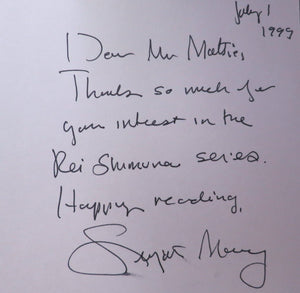 July 1
1999
Dear Mr Mattie,
Thanks so much for
your interest in the
Rei Shimura series.
Happy reading,
Sujata Massey